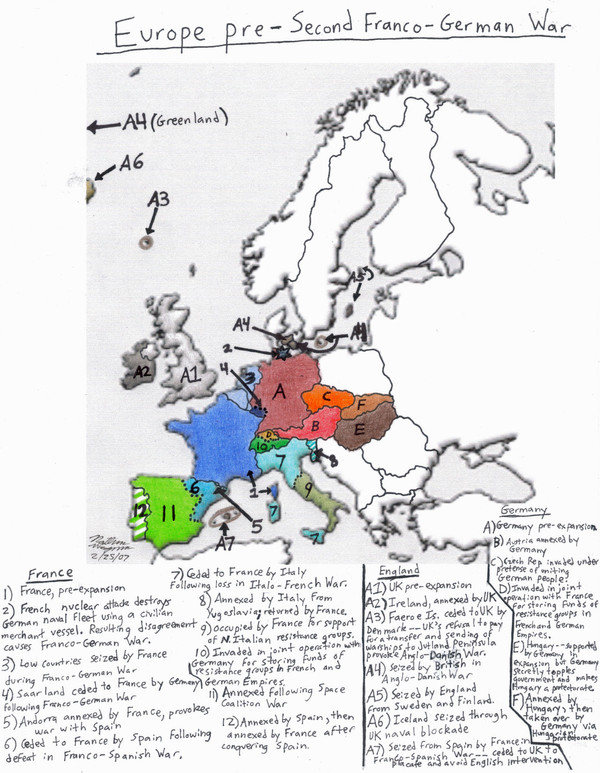 Europe pre-Second Franco-German War
A4 (Greenland)
A6
A3
A5
A4
2
4
3
A2
A1
A
C
F
B
E
D
10
7
8
1
9
6
12
11
5
7
A7
7
2/25/07
France
1) France, pre-expansion
2) French nuclear attack destroys
German naval Fleet using a civilian
merchant vessel. Resulting disagreement
causes Franco-German War.
3) Low countries seized by France
during Franco-German War
4) Saarland ceded to France by Germany
following Franco-German War
5) Andorra annexed by France, provokes
war with Spain
6) Ceded to France by Spain following
defeat in Franco-Spanish War.
7) Ceded to France by Italy
Following loss in Italo-French War.
8) Annexed by Italy from
Yugoslavia; returned by France.
9) Occupied by France for support
of N. Italian resistance groups.
10) Invaded in joint operation with
Germany for storing funds of
resistance groups in French and
German Empires.
11) Annexed Following Space
Coalition War
12) Annexed by Spain, then
annexed by France after
conquering Spain.
England
A1) UK pre-expansion
A2) Ireland, annexed by UK
A3) Faeroe Is. ceded to UK by
Denmark -- UK's refusal to pay
for a transfer and sending of
warships to Jutland Peninsula
provoke Anglo-Danish War.
A4) Seized by British in
Anglo-Danish War
A5) Seized by England
from Sweden and Finland.
A6) Iceland seized through
UK naval blockade
A7) Seized from Spain by France in
Franco-Spanish War -- ceded to UK to
placate and avoid English intervention
Germany
A) Germany pre-expansion
B) Austria annexed by
Germany
C) Czech Rep. invaded under
pretense of uniting
German people?
D) Invaded in joint
operation with France
for storing funds of
resistance groups in
French and German
Empires.
E) Hungary - supported
by Germany in
expansion but Germany
secretly topples
government and makes
Hungary a protectorate
F) Annexed by
Hungary; then
taken over by
Germany via
Hungarian
protectorate